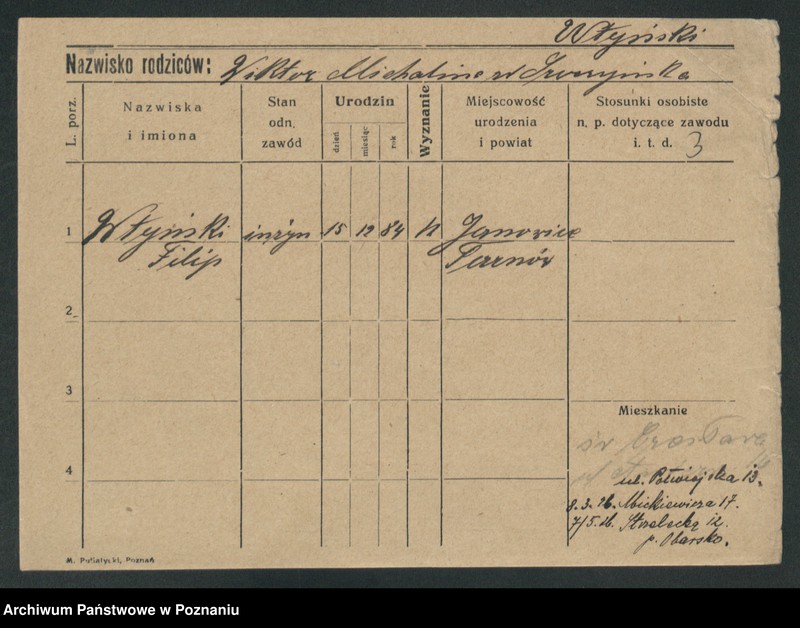 Włyński
Nazwisko rodziców: Wiktor Michalina
L. porz.
Nazwiska i imiona
Stan odn. zawód
Urodzin
dzień
miesiąc
rok
Wyznanie
Miejscowość urodzenia i powiat
Stosunki osobiste n. p. dotyczące zawodu i. t. d. 3
1 Włyński inżyn 15 12 84 Janowice
Filip Tarnów
2
3
4
Mieszkanie
św
ul. 13.
8.3.26. Mickiewicza 17.
7/5.26. Strzelecka
p.
M. Putiatycki, Poznań
Archiwum Państwowe w Poznaniu